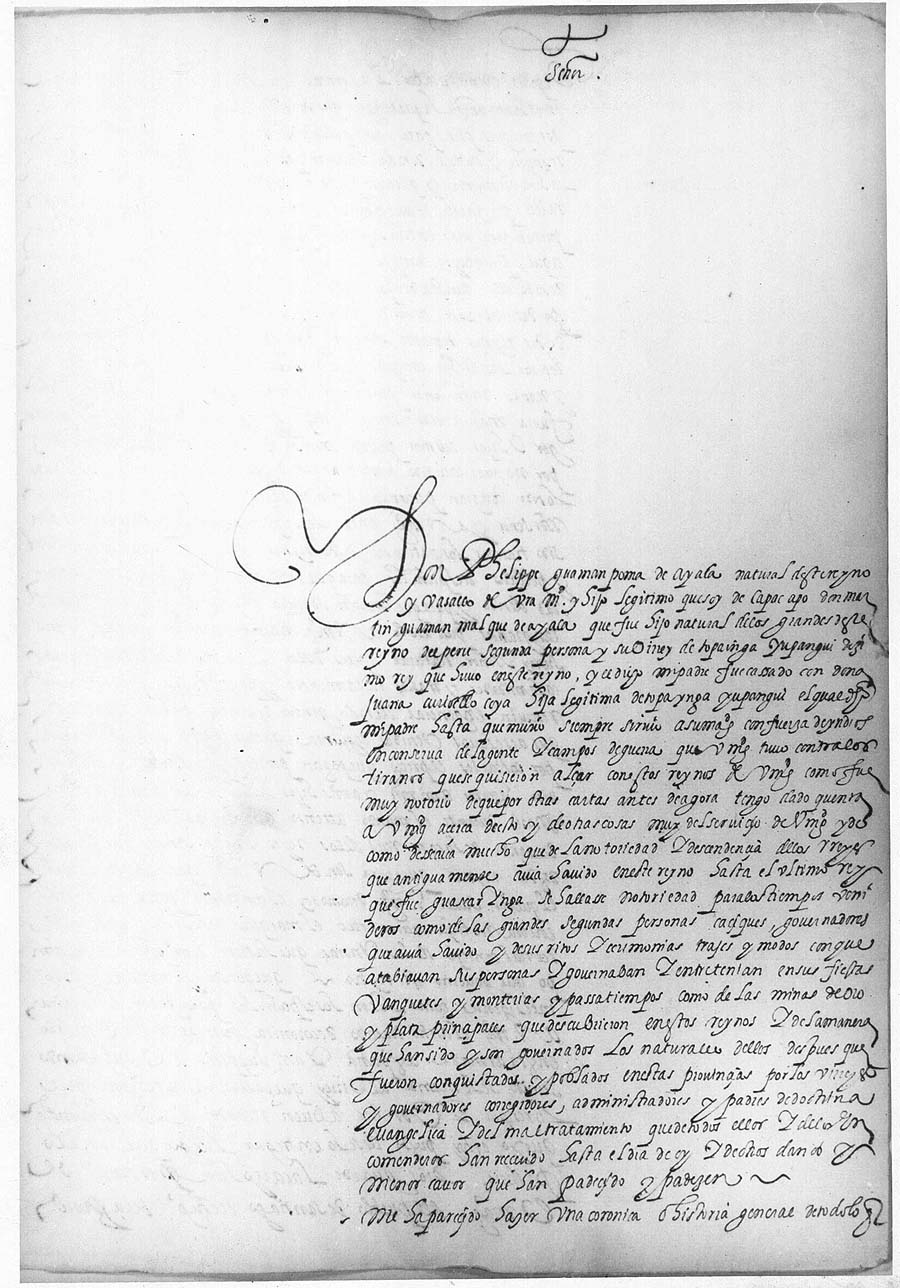 Señor.
Don Phelippe guaman poma de ayala natural deste reyno
y vasallo de vra mg. y hijo legitimo que soy de capac apo don mar
tin guaman malque de ayala que fue hijo natural de los grandes deste
reyno del peru segunda persona y su Virrey de topa inga yupangui desi
mo rey que huvo en este reyno, y el dicho mi padre fue casado con doña
juana curi ocllo coya hija legitima de topa ynga yupangui el qual dho
mi padre hasta que murio siempre sirvio a su magd con fuerza de yndios
en conserva de la gente y campos de guerra que V mgd tuvo contra los
tiranos que se quisieron alçar con estos reynos de V mgd como fue
muy notorio de que por otras cartas antes de agora tengo dado quenta
a V mgd acerca desto y de otras cosas muy del servicio de V mgd y de
como deseava mucho que de la notoriedad y descendencia dellos y reyes
que antiguamente avia havido en este reyno hasta el ultimo rey
que fue guascar ynga se hallase notoriedad para los tiempos veni
deros como de las grandes segundas personas caciques, governadores
que avia havido y de sus ritos y cerimonias trajes y modos con que
atabiavan sus personas y governaban y entretenian en sus fiestas
vanquetes y monterias y passatiempos como de las minas de oro
y plata prinçipales que descubrieron en estos reynos y de la manera
que han sido y son governados los naturales dellos despues que
fueron conquistados y poblados en estas provinçias por los vireyes
y governadores corregidores, administradores y padres de doctrina
evangelica y del mal tratamiento que de todos ellos y de los en
comenderos han reçevido hasta el dia de oy y de otros daños y
menos cavos que han padeçido y padeçen
me ha pareçido haçer una coronica o historia general de todo lo q